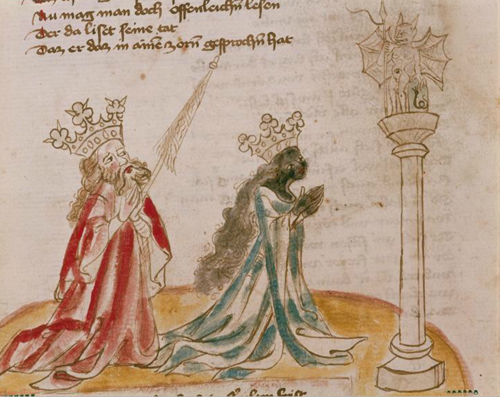 Nu mag man doch offenleichn lesen
Der da liset seine tat
Daz er daz in ainē zorn gesprochn hat